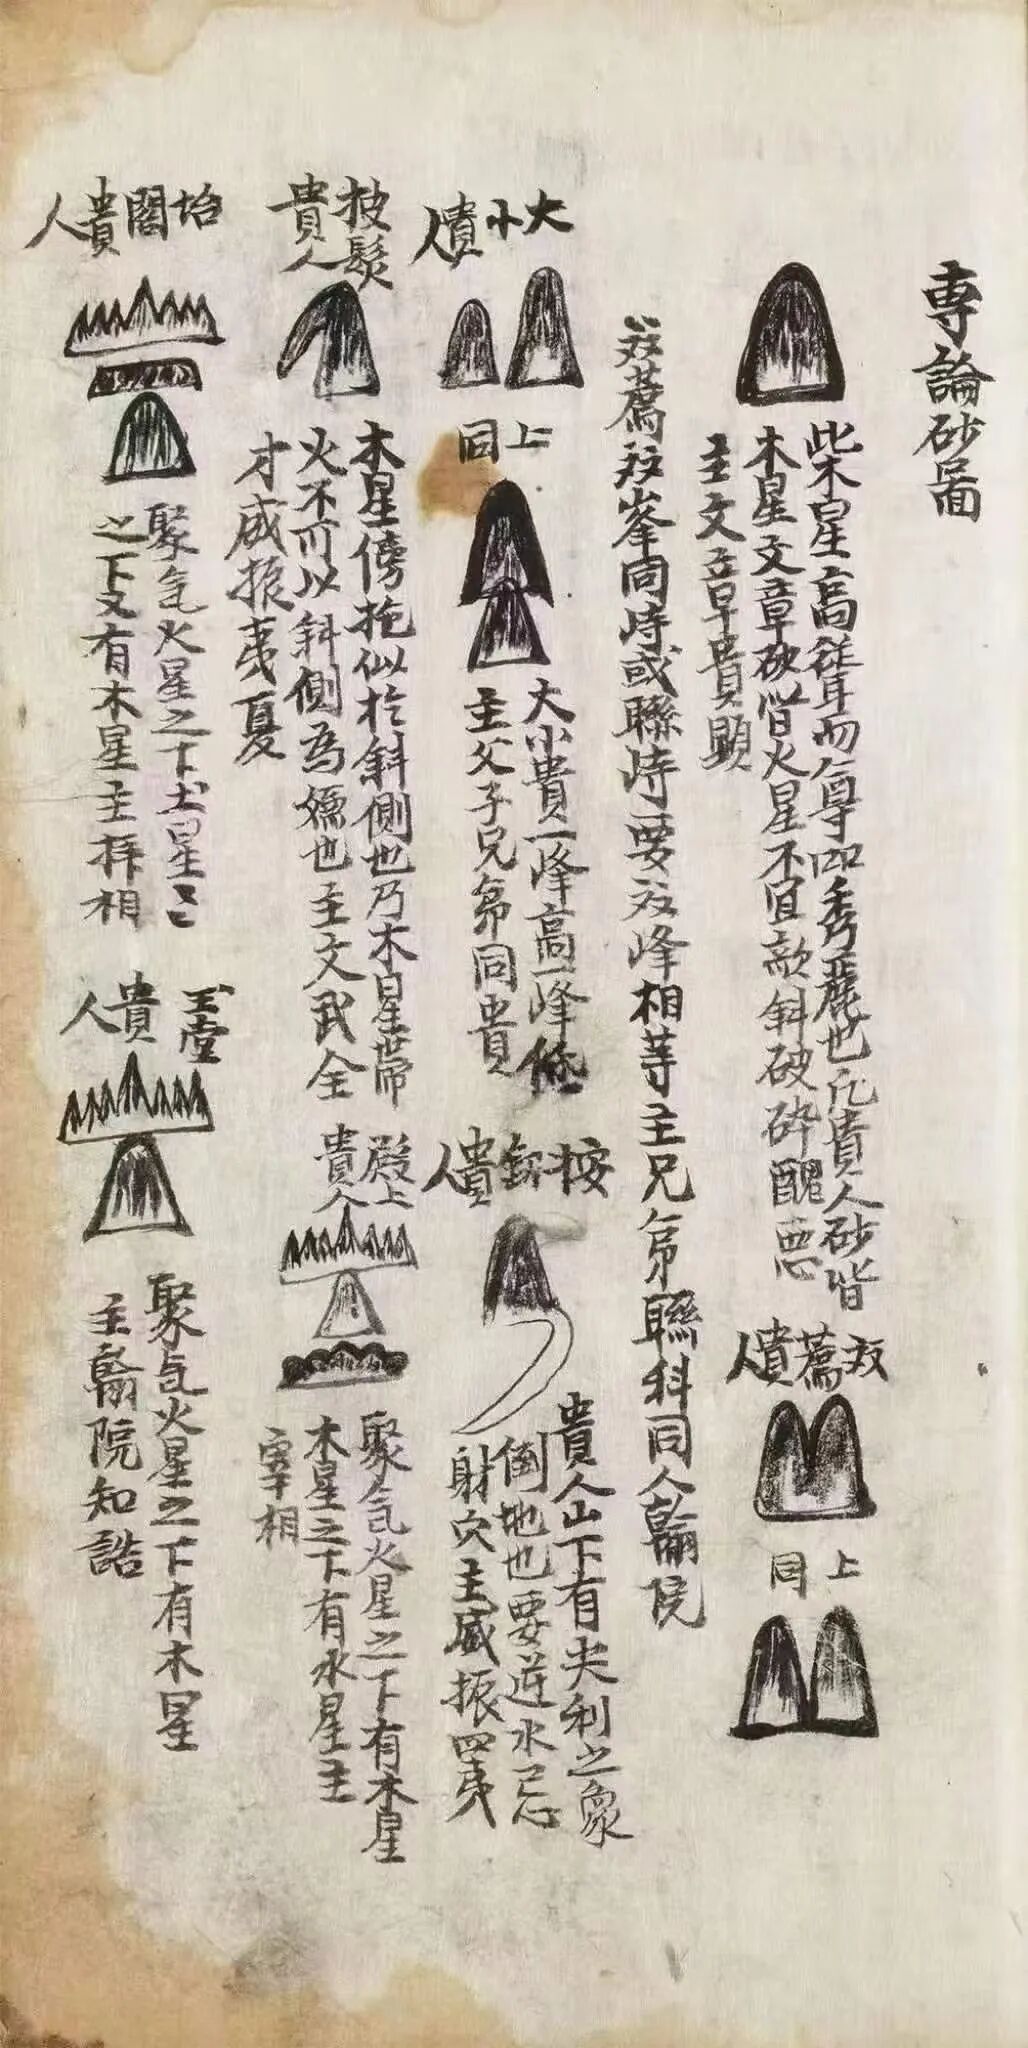 專論砂啚
此木星高聳而尊即秀麗也凡貴人砂皆
木星文章砂皆火星不宜欹斜破碎醜惡
主文章貴顯
双薦貴人
上同
双薦双峯同峙或聯峙要双峰相等主兄弟聯科同入翰院
大小貴人
上同
大小貴一峰高一峰低
主父子兄弟同貴
按劍貴人
貴人山下有尖利之象
倒地也要逆水忌
射穴主威振四夷
披髮
貴人
木星傍拖似於斜側也乃木星帶
火不可以斜側為嫌也主文武全
才威振夷夏
殿上
貴人
聚气火星之下有木星
木星之下有水星主
宰相
坮閣貴人
聚气火星之下土星土星
之下又有木星主拜相
玉堂
貴人
聚气火星之下有木星
主翰院知誥